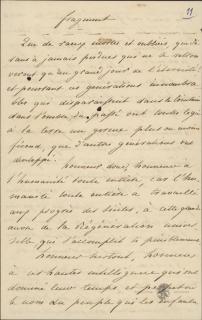 fragment
11
Que de races mortes et oubliées, que de
sans à jamais perdues que ne se retrou
veront qu'au grand jour de l'éternité
et pourtant ces générations innombra
bles qui disparaissent dans le lointain
dans l'ombre du passé ont toutes légué
à la terre un germe plus ou moins
fécond, que d'autres générations ont
développé.
honneur donc, honneur à
l'humanité toute entière car l'hu
manité toute entière a travaillé
aux progrès des siècles, à cette grande
œuvre de la Régénération univer
selle qui s'accomplit si péniblement
honneur surtout, honneur
à ces hautes intelligences qui ont
dominé leur temps, et
le nom du peuple qui les enfanta